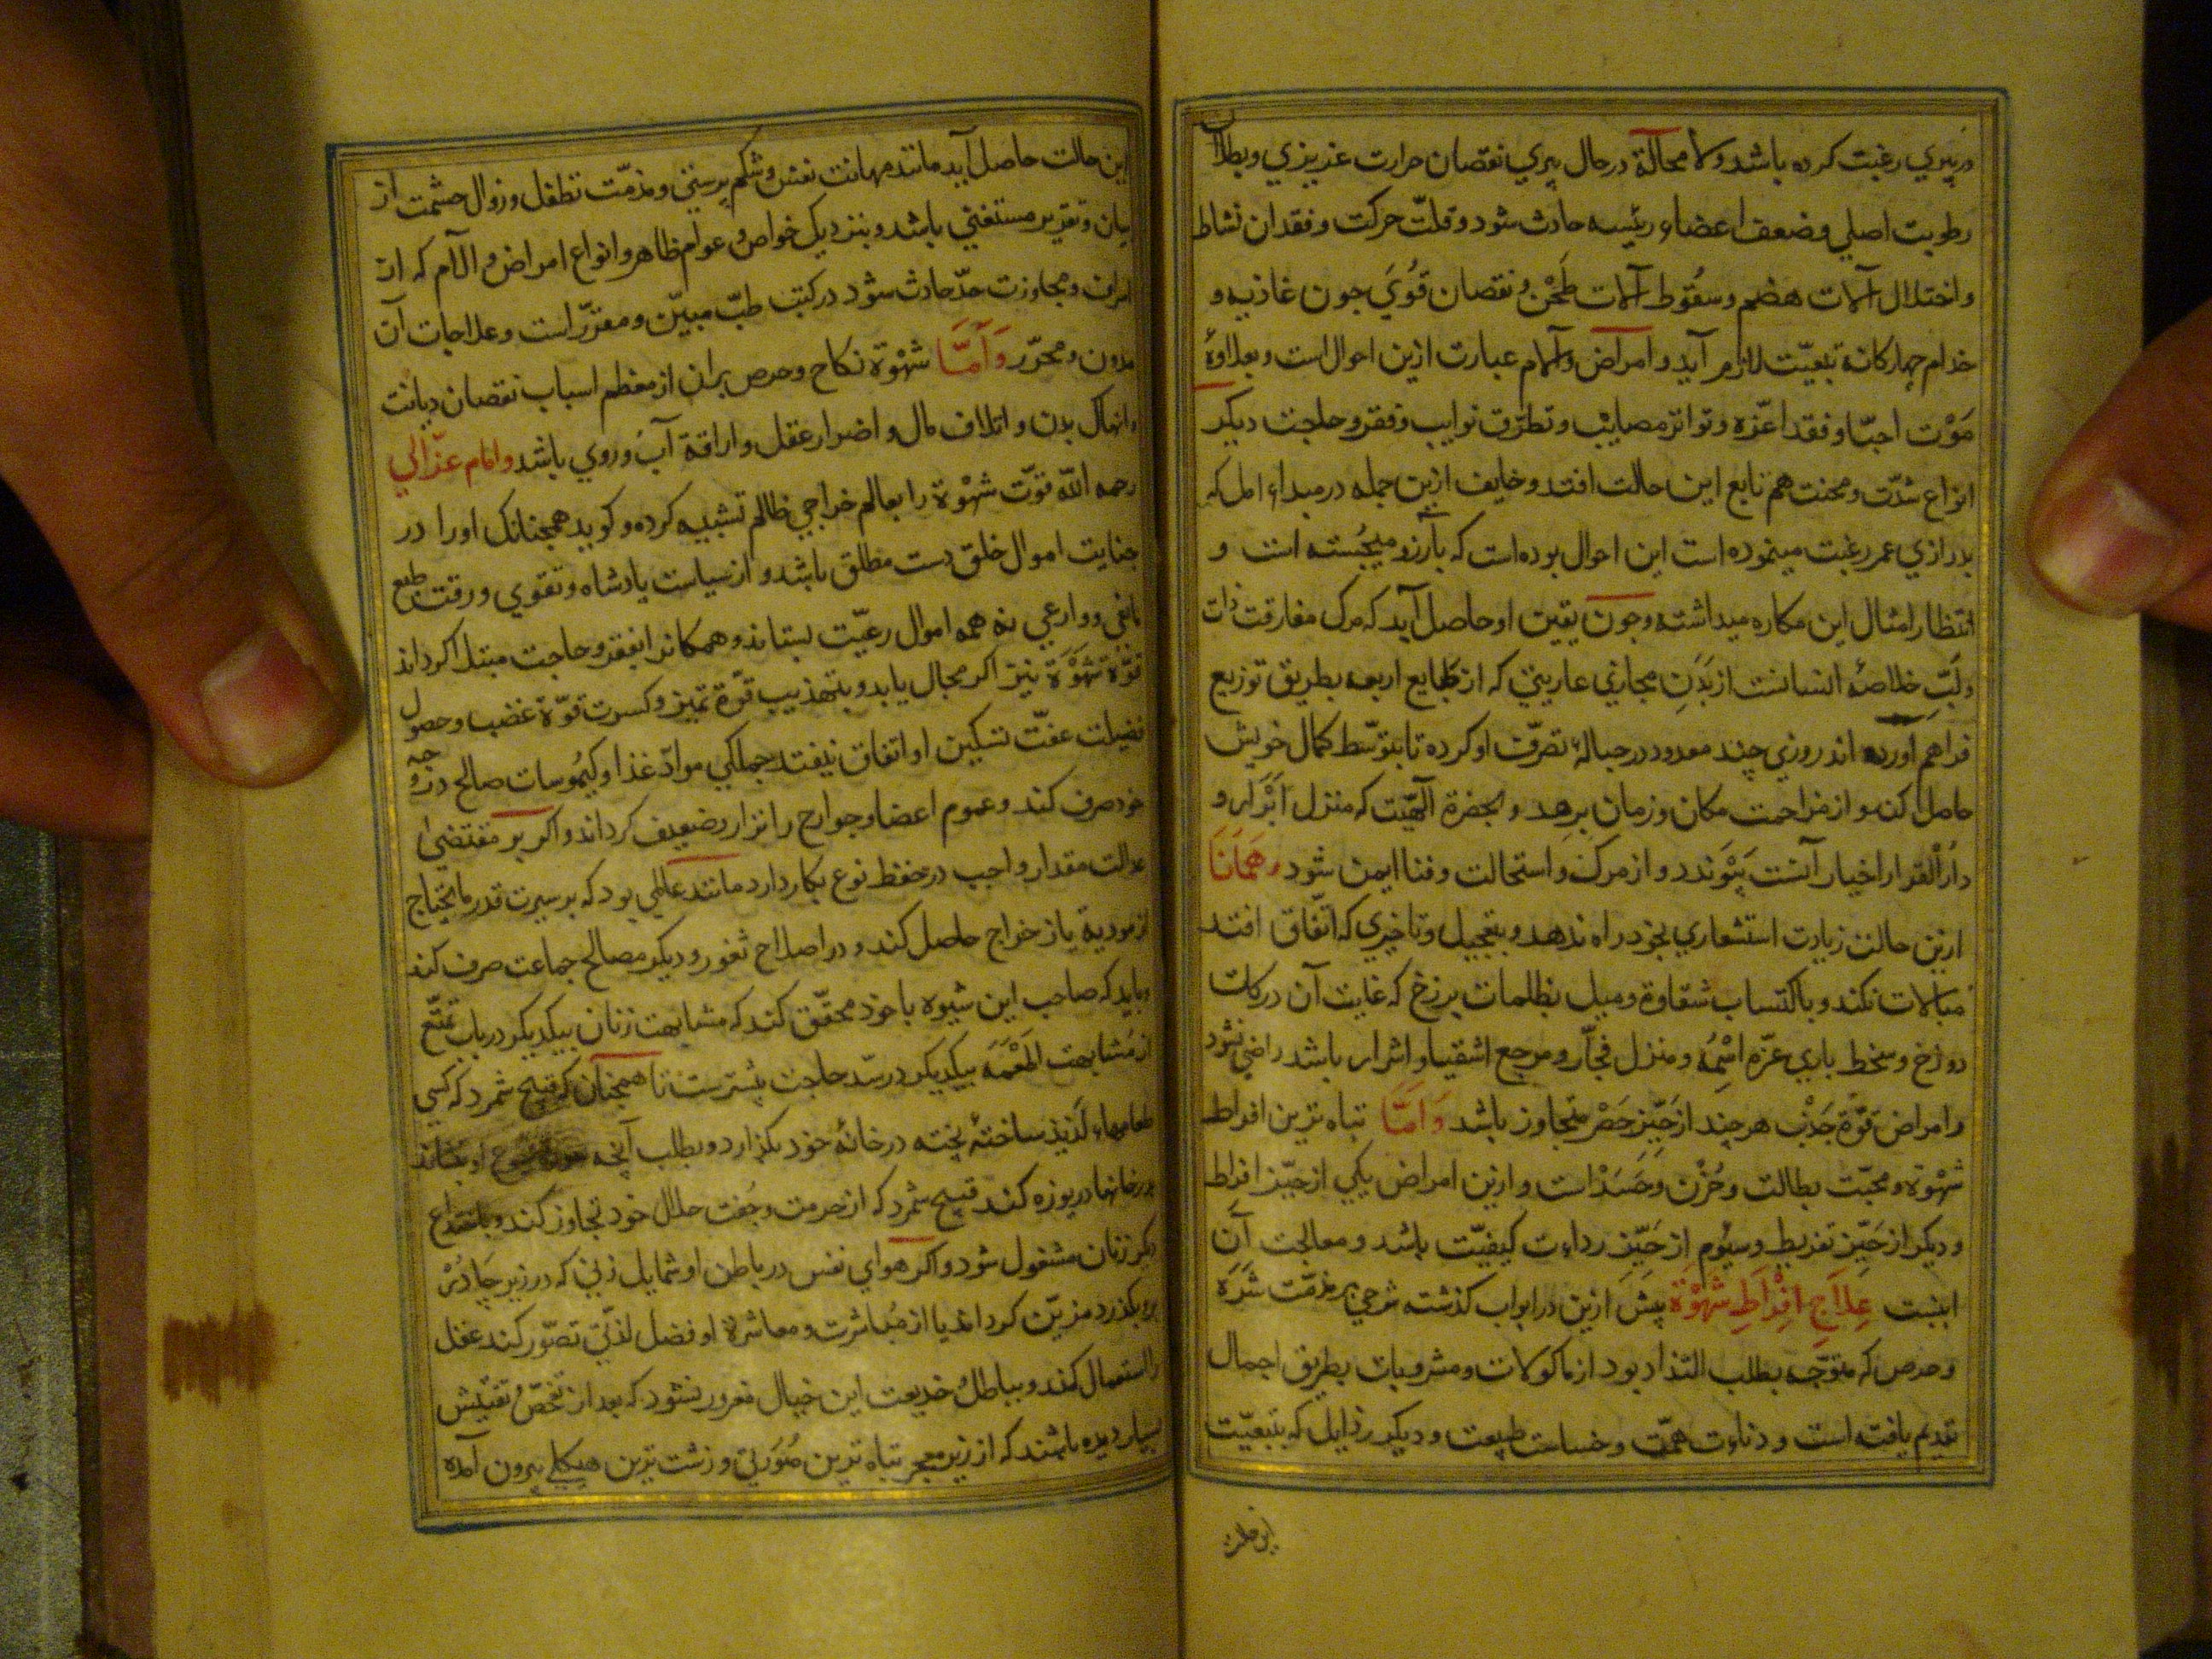 در پیری رغبت کرده باشد ولا محالة در حال پیری نقصان حرارت غریزی و بطلان
رطوبت اصلی و ضعف اعضاء رئیسه حادث شود و قلّت حرکت و فقدان نشاط
و اختلال آلات هضم و سقوط آلات طَحْن و نقصان قُویَ جون غاذیه و
خدام چهارکانة بتبعیّت لازم آید و امراض و آلام عبارت ازین احوال است و بعلاوهٔ
مَوْت احبّا و فقد اعزّه و تواتر مصایب و تطرّق نوایب و فقر و حاجت دیکر
انواع شدّت و محنت هم تابع این حالت افتد و خایف ازین جمله در مبداء امل که
بدرازی عمر رغبت مینموده است این احوال بوده است که بآرزو میجُسته است و
انتظار امثال این مکاره میداشته وجون یقین او حاصل آید که مرک مفارقت ذات
ولُبّ خلاصهٔ انسانست از بَدَنِ مجازی عاریتی که از طبایع اربعه بطریق توزیع
فراهَم آورده اند روزی چند معدود در حبالهٔ تصرّف او کرده تا بتوسّط کمال خویش
حاصل کند و از مزاحمت مکان و زمان برهد و بحضرة الٓهیّت که منزل اَبْرَار و
دارُ الْقرار اخیار آنست پَیْوَندد و از مرک و استحالت و فنا ایمن شود وهَمَانَا
ازین حالت زیادت استشعاری بخود راه ندهد و بتعجیل و تاخیری که اتّفاق افتد
مبالات نکند و باکتساب شقاوة و میل بظلمات برزخ که غایت آن درکات
دوزخ و سخط باری عزّه اسْمُهُ و منزل فجّار و مرجع اشقیا و اشرار باشد راضی نشود
و امراض قوّة جَذْب هر چند از حَیّز حَصْر متجاوز باشد وَاَمَّا تباه ترین افراط
شهْوة و محبّت بطالت و حُزْن وحَسَدْ است و ازین امراض یکی از حَیّز افراط
و دیکر از حَیّز تفریط و سیُوم از حَیّز رداءت کیفیّت باشد و معالجت آن
اینبت عِلاَجِ اِفْرَاطِ شَهْوَة پیش ازین در ابواب کذشته شرحی بر مذمّت شَرَه
و حرص که متوجّه بطلب التذاذ بود از ماکولات و مشروبات بطریق اجمال
تقدیم یافته است و دناءت همّت و خساست طبیعت و دیکر رذایل که بتبعیّت
این حالت
این حالت حاصل آید مانند مهانت نفس و شکم پرستی و مذمّت تطفل و زوال حشمت از
بیان و تقریر مستغنی باشد و بنزدیک خواص و عوام ظاهر و انواع امراض و آلام که از
اسراف و مجاوزت حدّ حادث شود در کتب طبّ مبیّن و مقرّر است و علاجات آن
مدون و محرّر وَاَمَّا شهْوة نکاح و حرص بران از معظم اسباب نقصان دیانت
و انهاک بدن و اتلاف مال و اضرار عقل و اراقة آب روی باشد وامام غزّالی
رحمه اللّه قوّت شهْوة را بعالم خراجی ظالم تشبیه کرده و کوید همجنانک او را در
جنایت اموال خلق دست مطلق باشد و از سیاست پادشاه و تقوی و رقت طبع
مانعی و وازعی نه همه اموال رعیّت بستاند و همکانرا بفقر و حاجت مبتلا کرداند
قوّة شهْوَة نیز اکر مجال یابد و بتهذیب قوّة تمیز و کسرت قوّة غضب و حصول
فضیلت عفّت تسکین او اتفاق نیفتد جملکی موادّ غذا و کیمُوسات صالح در وجه
خود صرف کند و عموم اعضا و جوارح را نزار و ضعیف کرداند و اکر بر مقتضی
عدالت مقدار واجب در حفظ نوع بکار دارد مانند عاملی بود که بر سیرت قدر مایحتاج
از مودیة یاز خراج حاصل کند و در اصلاح ثغور و دیکر مصالح جماعت صرف کند
و باید که صاحب این شیوه با خود محقّق کند که مشابهت زنان بیکدیکر در باب تمتّع
از مُشابهت اطعمَه بیکدیکر در سدّ حاجت بیشترست تا همچنان که قبیح شمرد که کسی
طعامهاء لَذیذ ساختهٔ پخته در خانهٔ خود بکزارد و بطلب آنچه جوع او بنشاند
بدرخانها دریوزه کند قبیح شمرد که از حرمت و جُفت حلال خود تجاوز کند و بخداع
دیکر زنان مشغول شود و اکر هوای نفس در باطن او شمایل زنی که در زیر چَادُر
برو بکذرد مزیّن کرداند یا از مباشرت و معاشرة او فضل لذّتی تصوّر کند عقل
را استعمال کند و بباطل خدیعت این خیال مغرور نشود که بعد از تفحّصُ تفتیش
بسیار دیده باشند که از زیر معجر تباه ترین صُورَتی و زشت ترین هیکلی بیرون آمده